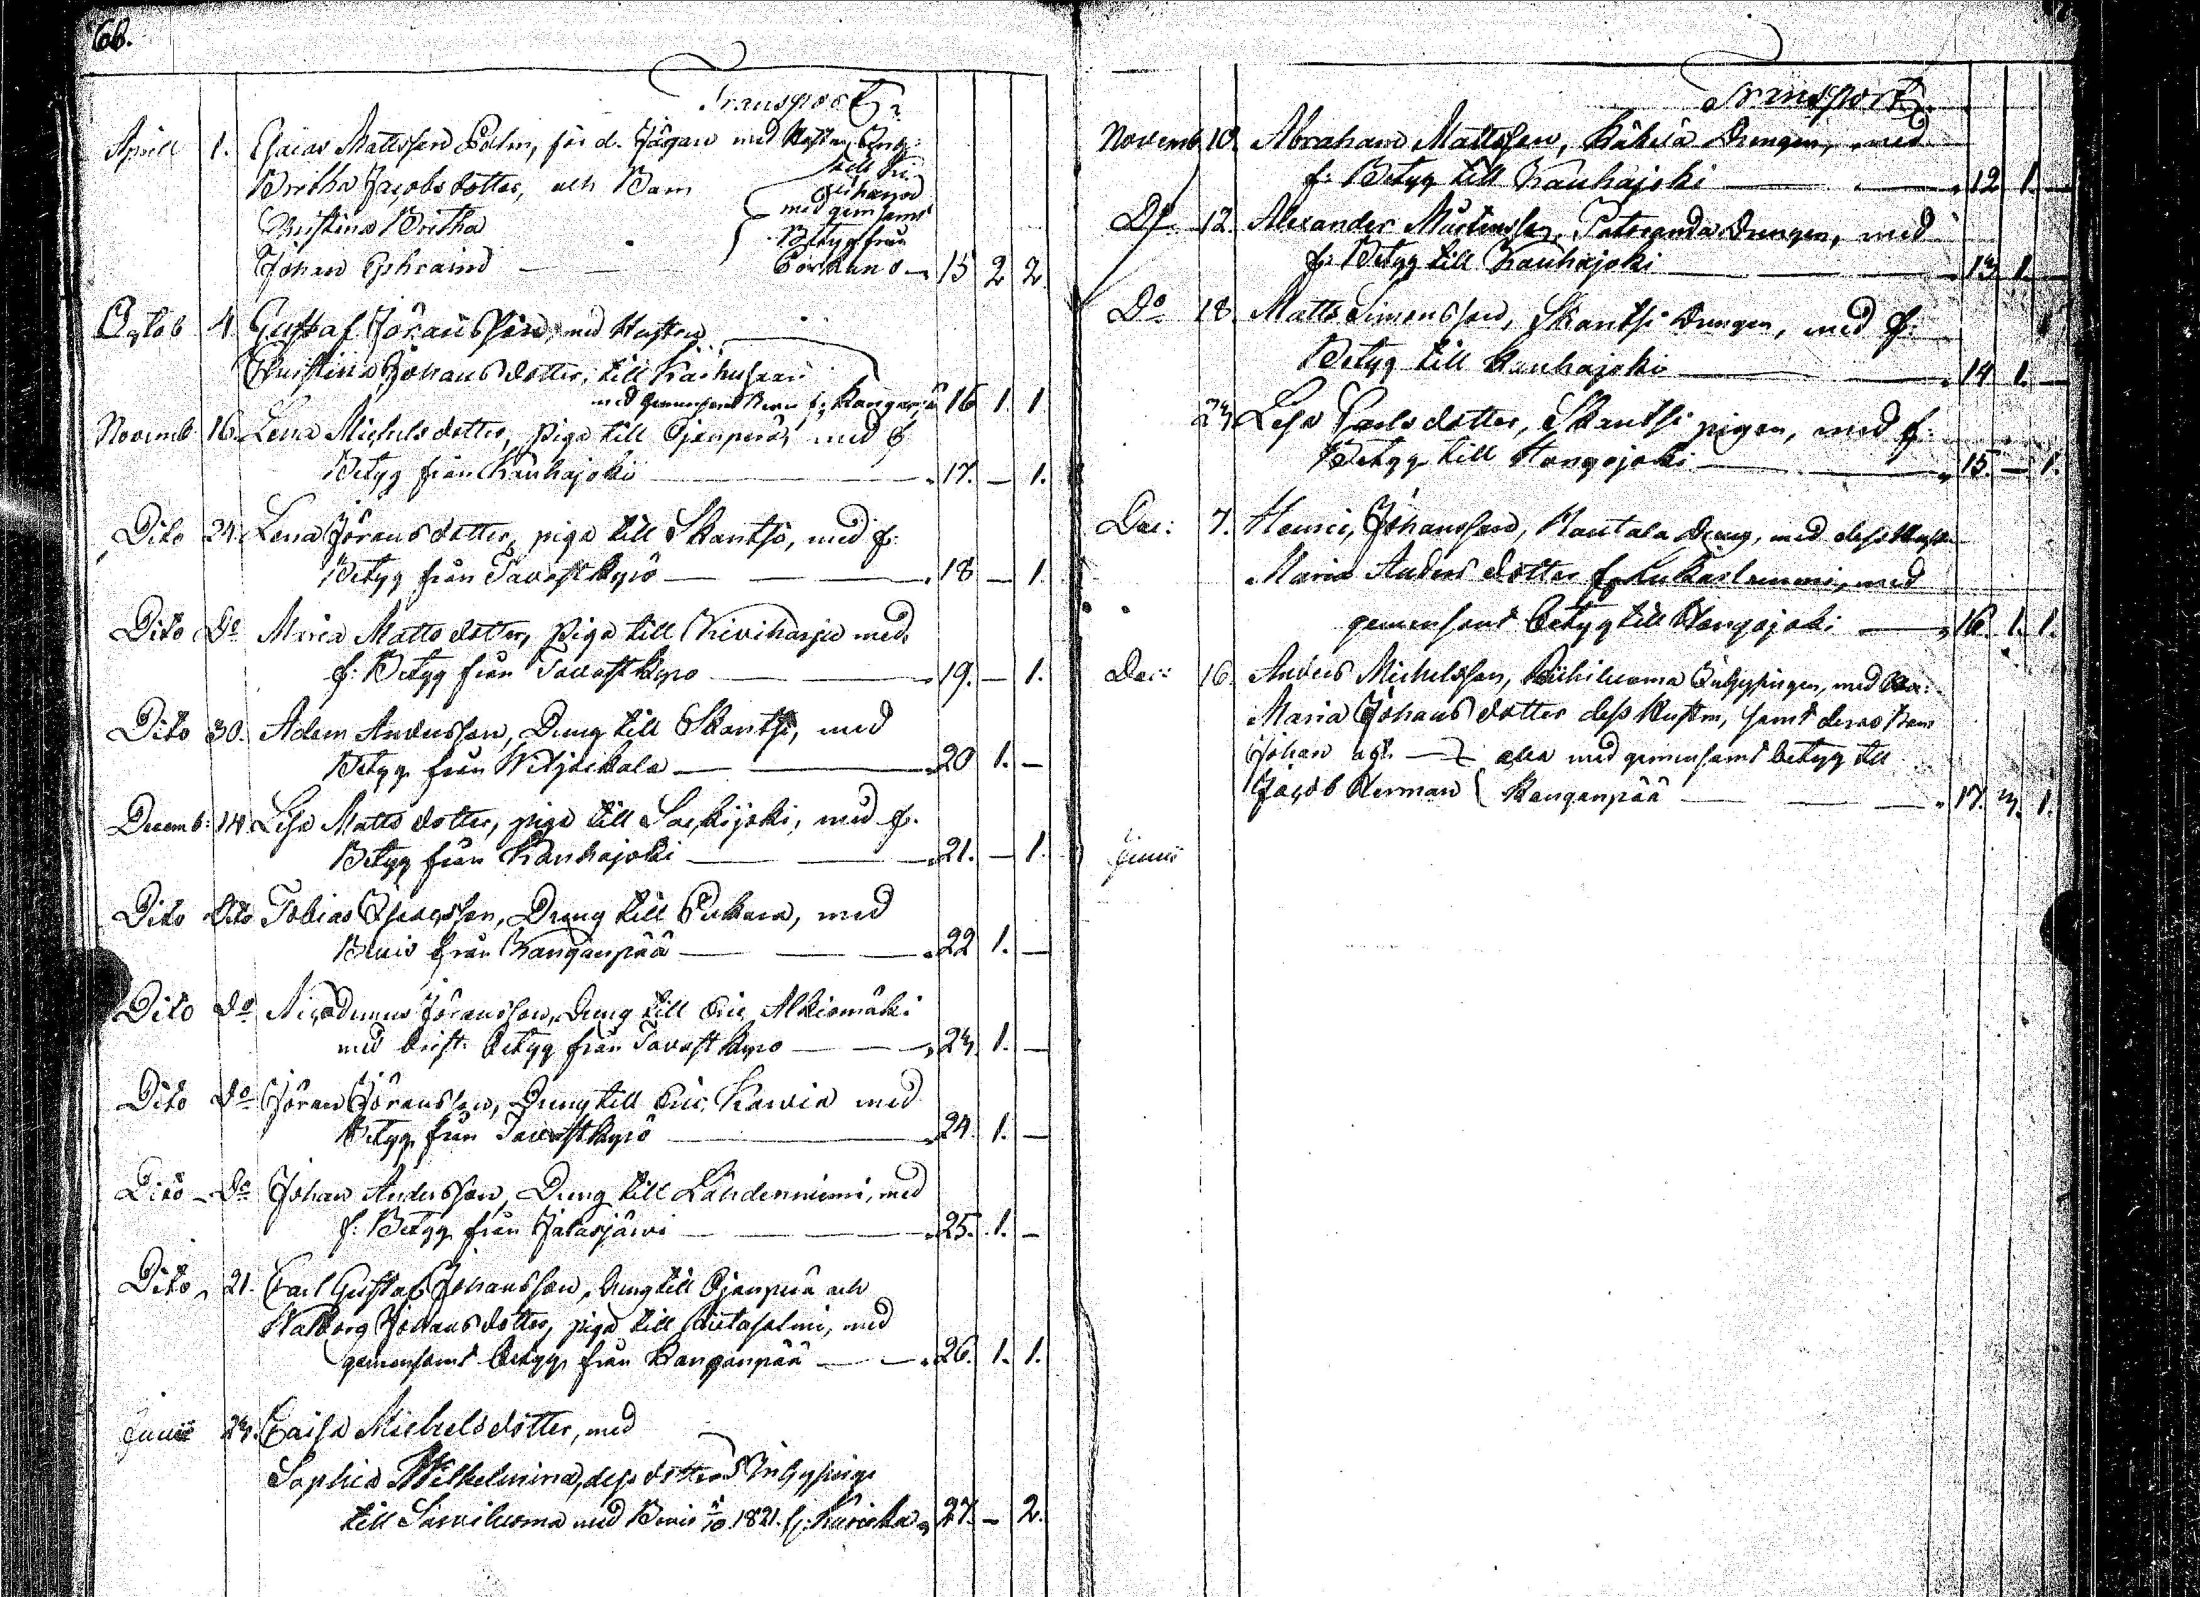 66.
Transport
Aprill 1. Esaias Mattsson Palm, för d. Jägare med Hustru
Britha Jacobsdotter, och Barn
Christina Britha
med gemsamt
Betyg från
Johan Ephraim — — 15 2 2.
Octob 4 Gustaf Jöransson, med Hustru
Christina Johansdotter, till Karhusaari
med gemensamt Bevis fr. Kangan 16 1. 1
Novemb 16. Lena Michelsdotter, piga till Ojanperä, med f.
Betyg från Kauhajoki — 17. — 1.
Dito 24. Lena Jöransdotter, piga till Skantsi, med f.
Betyg från Tavastkyro — — 18 — 1.
Dito Do Maria Mattsdotter, piga till Kiviharju med
f. Betyg från Tavastkyro — — 19. — 1.
Dito 30. Adam Andersson, Dreng till Skantsi, med
Betyg från — — 20 1. —
Decemb. 14. Lisa Mattsdotter, piga till Säckijoki, med f.
Betyg från Kauhajoki — — 21. — 1.
Dito Dito Tobias Isacsson, Dreng till Pukara, med
Bevis från Kanganpää — — 22 1. —
Dito Do Nicodemus Jöransson, Dreng till Eric Alkiomäki
med Prest. Betyg från Tavastkyro — — 23. 1. —
Dito Do Jöran Jöransson, Dreng till Eric Karvia med
Betyg från Tavastkyro — 24. 1. —
Dito Do Johan Andersson, Dreng till Lähdenniemi, med
f. Betyg från Jalasjärvi — — 25. 1. —
Dito 21. Carl Gustaf Johansson, dreng till Ojanperä och
Walborg Johansdotter, piga till Rietasalmi, med
gemensamt betyg från Kanganpää — — 26. 1. 1.
Junii 23. Caisa Michelsdotter, med
Sophia Wilhelmina, dess dotter Inhysinge
till Sarviluoma med Bevis 1821. fr. Kurikka 27. — 2.
Transport
Novemb. 10. Abraham Mattsson, Käkelä Drengen, med
f. Betyg till Kauhajoki — — 12 1. —
Do 12. Alexander Mårtensson, Drengen, med
f. Betyg till Kauhajoki — — 13 1. —
Do 18. Matts Simonsson, Skantsi Drengen, med f.
Betyg till Kauhajoki — — 14 1. —
23 Lisa Carlsdotter, Skantsi pigan, med f.
Betyg till Hongojoki — — 15. — 1.
Dec: 7. Henric Johansson, Rautala dreng, med dess Hustru
Maria Andersdotter fr. med
gemensamt betyg till Hongojoki — 16. 1. 1.
Dec: 16. Anders Michelsson, Inhysingen, med
Maria Johansdotter dess Hustru, samt deras Barn
Johan — alla med gemensamt betyg till
Jacob Herman Kanganpää — — 17. 3. 1.
Junii